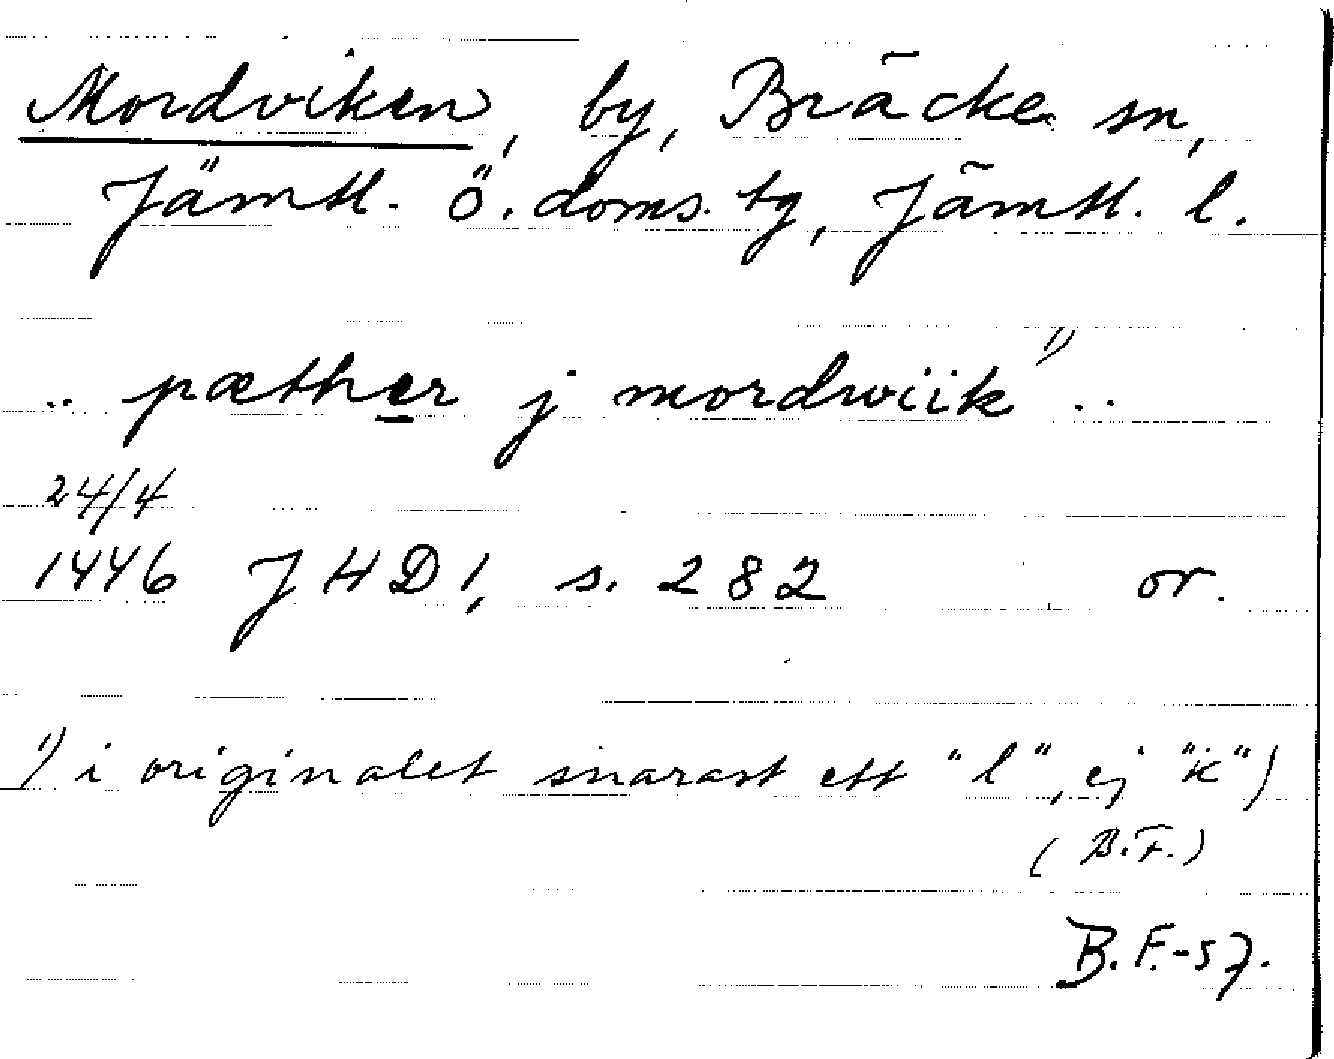 Mordviken, by, Bräcke sn,
Jämtl. ö. doms. tg, Jämtl. l.
.. pæther j mordwiik 1) ..
24/4
1446 JHD 1, s. 282 or.
1) i originalet snarast ett "l", ej "k")
(B.F.)
B.F.-57.